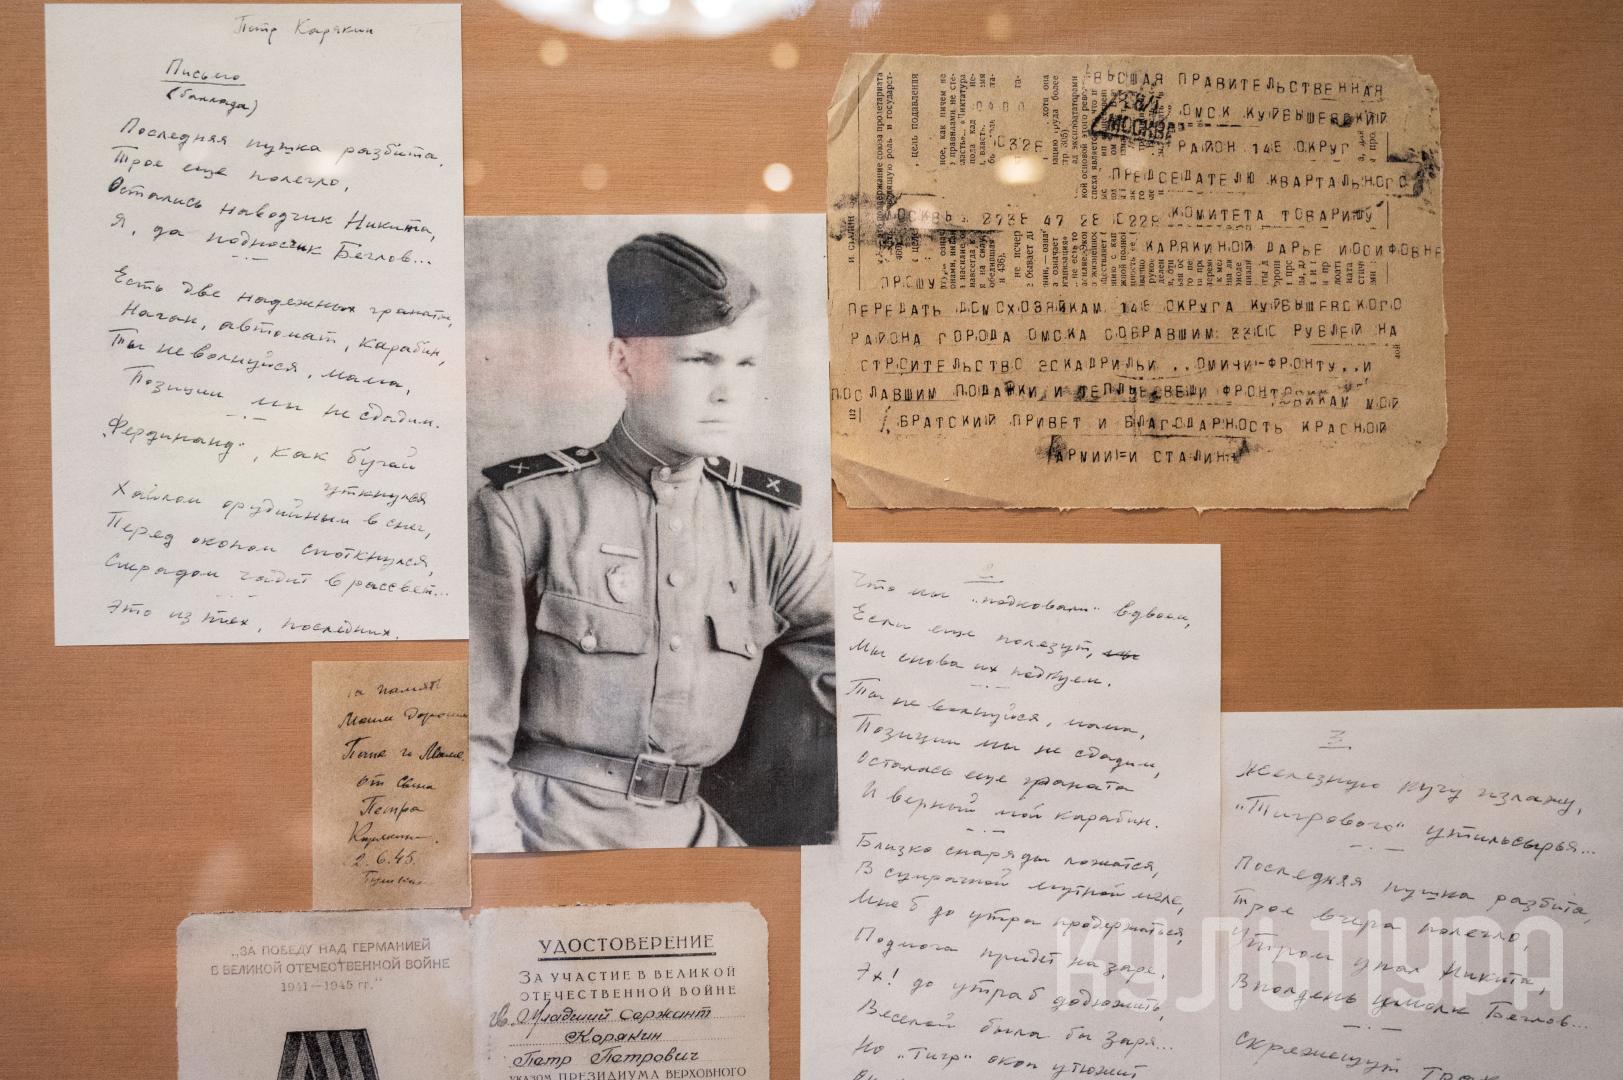 Петр Карякин
Письмо
(баллада)
Последняя пушка разбита.
Трое еще полегло,
Остались наводчик Никита,
Я, да подносчик Беглов...
Есть две надежных гранаты,
Наган, автомат, карабин,
Ты не волнуйся, мама,
Позиции мы не сдадим.
„Фердинанд", как бугай
уткнулся
Хоботом орудийным в снег,
Перед окопом споткнулся,
Смрадом чадит в рассвет...
Это из тех, последних,
ВЫСШАЯ ПРАВИТЕЛЬСТВЕННАЯ
ОМСК КУЙБЫШЕВСКИЙ
МОСКВА
РАЙОН 14Е ОКРУГ
ПРЕДСЕДАТЕЛЮ КВАРТАЛЬНОГО
МОСКВЫ 2738 47 28 0228 КОМИТЕТА ТОВАРИЩУ
КАРЯКИНОЙ ДАРЬЕ ИОСИФОВНЕ
ПРОШУ
ПЕРЕДАТЬ ДОМОХОЗЯЙКАМ 14Е ОКРУГА КУЙБЫШЕВСКОГО
РАЙОНА ГОРОДА ОМСКА СОБРАВШИМ 3300 РУБЛЕЙ НА
СТРОИТЕЛЬСТВО ЭСКАДРИЛЬИ ,,ОМИЧИ-ФРОНТУ,, И
ПОСЛАВШИМ ПОДАРКИ И ТЕПЛЫЕ ВЕЩИ ФРОНТОВИКАМ МОЙ
БРАТСКИЙ ПРИВЕТ И БЛАГОДАРНОСТЬ КРАСНОЙ
АРМИИ=И СТАЛИН+
2
Что мы „подковали" вдвоем,
Если еще полезут,
Мы снова их подкуем.
Ты не волнуйся, мама,
Позиции мы не сдадим,
Осталась еще граната
И верный мой карабин.
Близко снаряды ложатся,
В сумрачной мутной мгле,
Мне б до утра продержаться,
Подмога придет на заре.
Эх! до утра б додюжить,
Веселой была бы заря...
Но „Тигр" окоп утюжит
3
Железную кучу изляжу,
„Тигрового" утильсырья...
Последняя пушка разбита,
Трое вчера полегло,
Утром упал Никита,
В полдень умолк Беглов...
Скрежещут
На память
Моим Дорогим
Папе и Маме
от Сына
Петра
Карякин.
2.6.45.
„ЗА ПОБЕДУ НАД ГЕРМАНИЕЙ
В ВЕЛИКОЙ ОТЕЧЕСТВЕННОЙ ВОЙНЕ
1941—1945 гг."
УДОСТОВЕРЕНИЕ
ЗА УЧАСТИЕ В ВЕЛИКОЙ
ОТЕЧЕСТВЕННОЙ ВОЙНЕ
гв. Младший Сержант
Корякин
Петр Петрович
УКАЗОМ ПРЕЗИДИУМА ВЕРХОВНОГО
КУЛЬТУРА